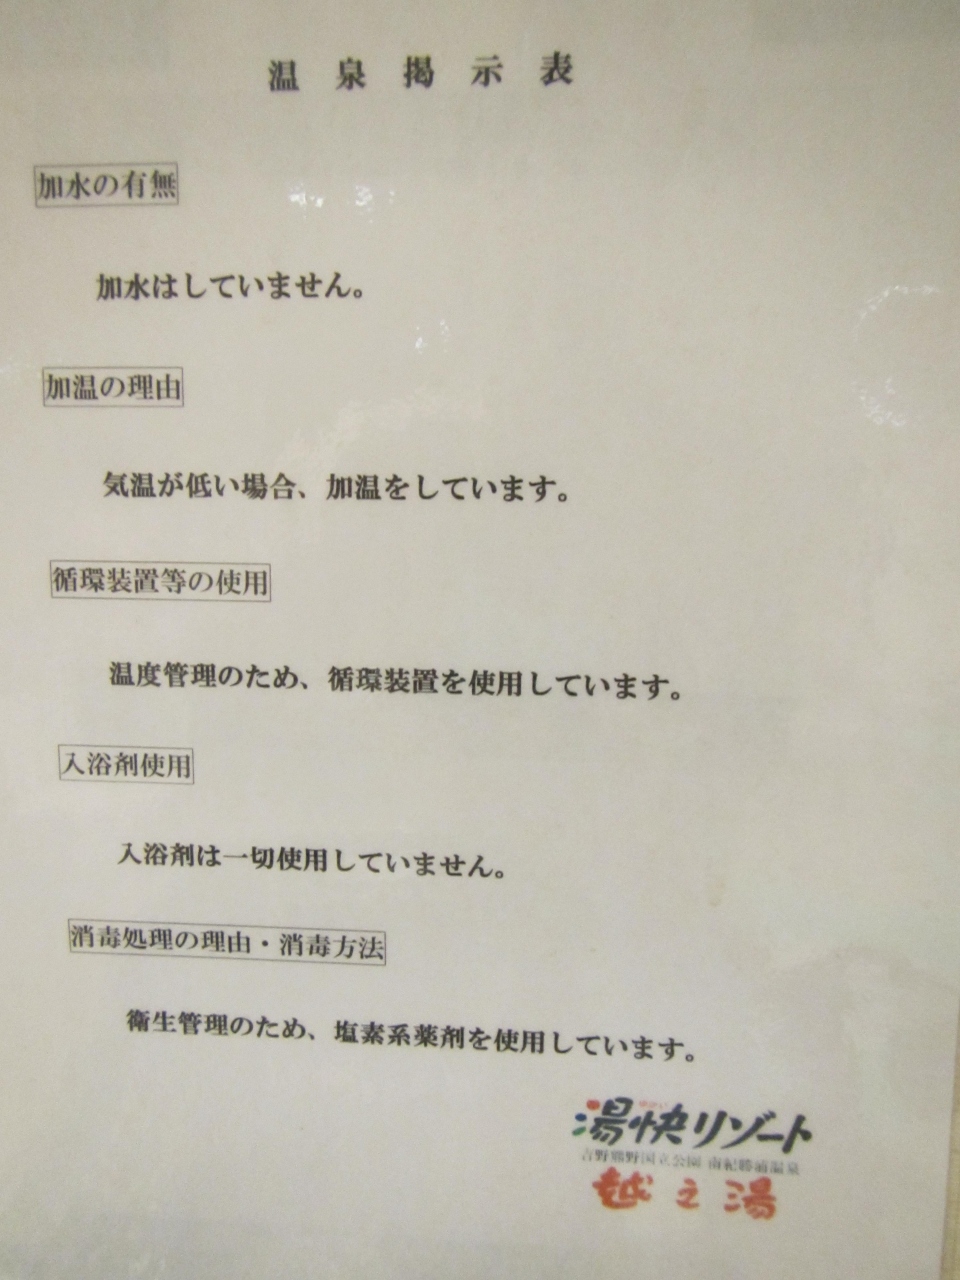 温泉掲示表
加水の有無
加水はしていません。
加温の理由
気温が低い場合、加温をしています。
循環装置等の使用
温度管理のため、循環装置を使用しています。
入浴剤使用
入浴剤は一切使用していません。
消毒処理の理由・消毒方法
衛生管理のため、塩素系薬剤を使用しています。
ゆかい
湯快リゾート
吉野熊野国立公園 南紀勝浦温泉
越之湯